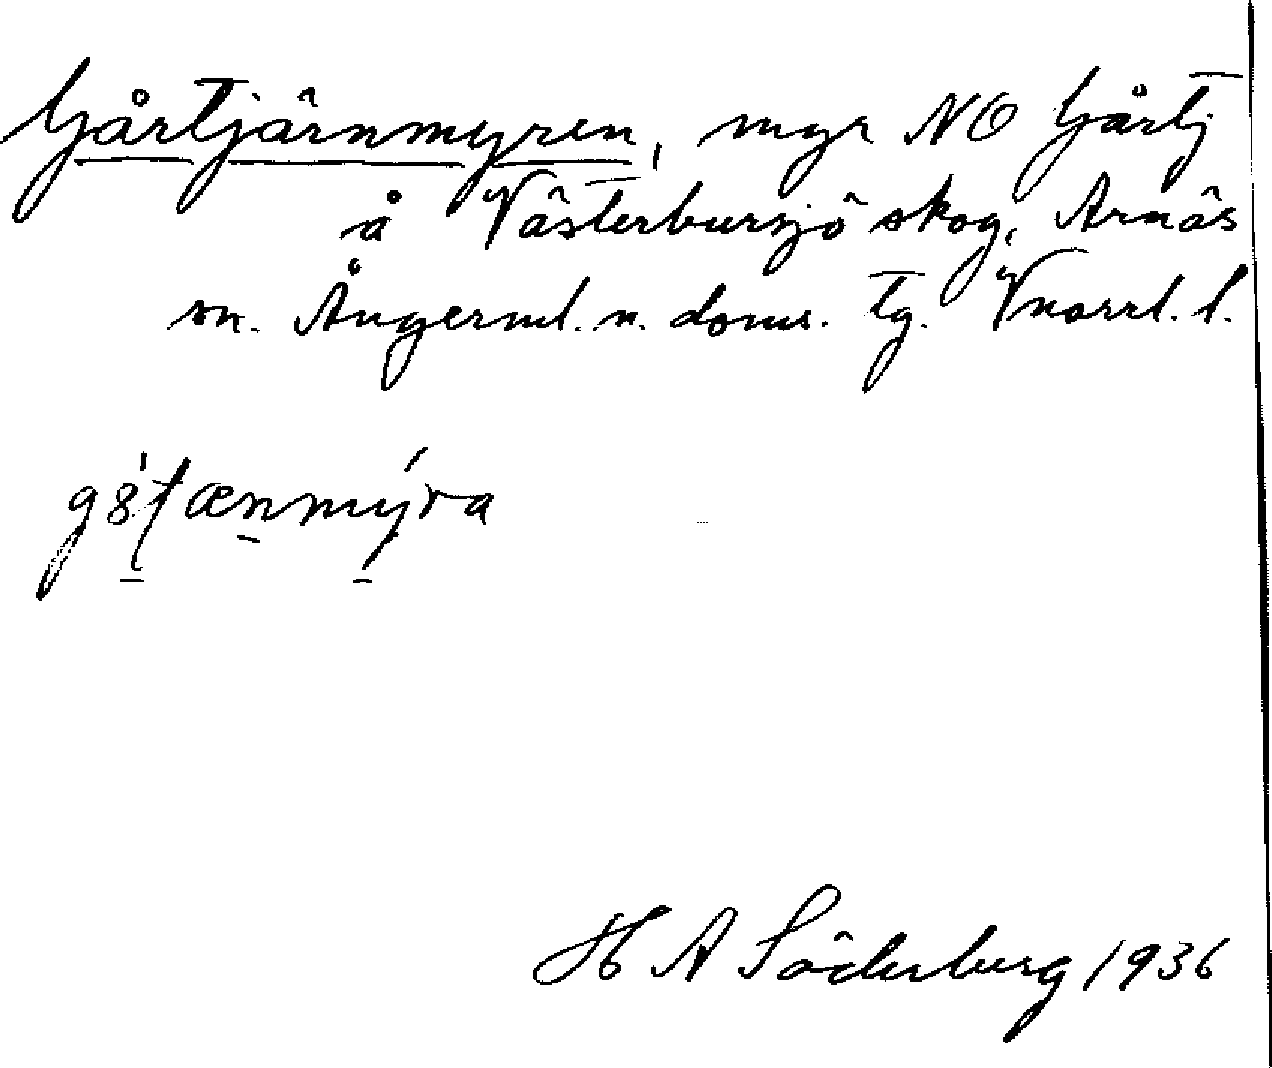 Gårtjärnmyren, myr NO Gårtj
å Västerbursjö skog, Arnäs
sn. Ångerml. n. doms. tg. Vnorrl. l.
H A Söderberg 1936